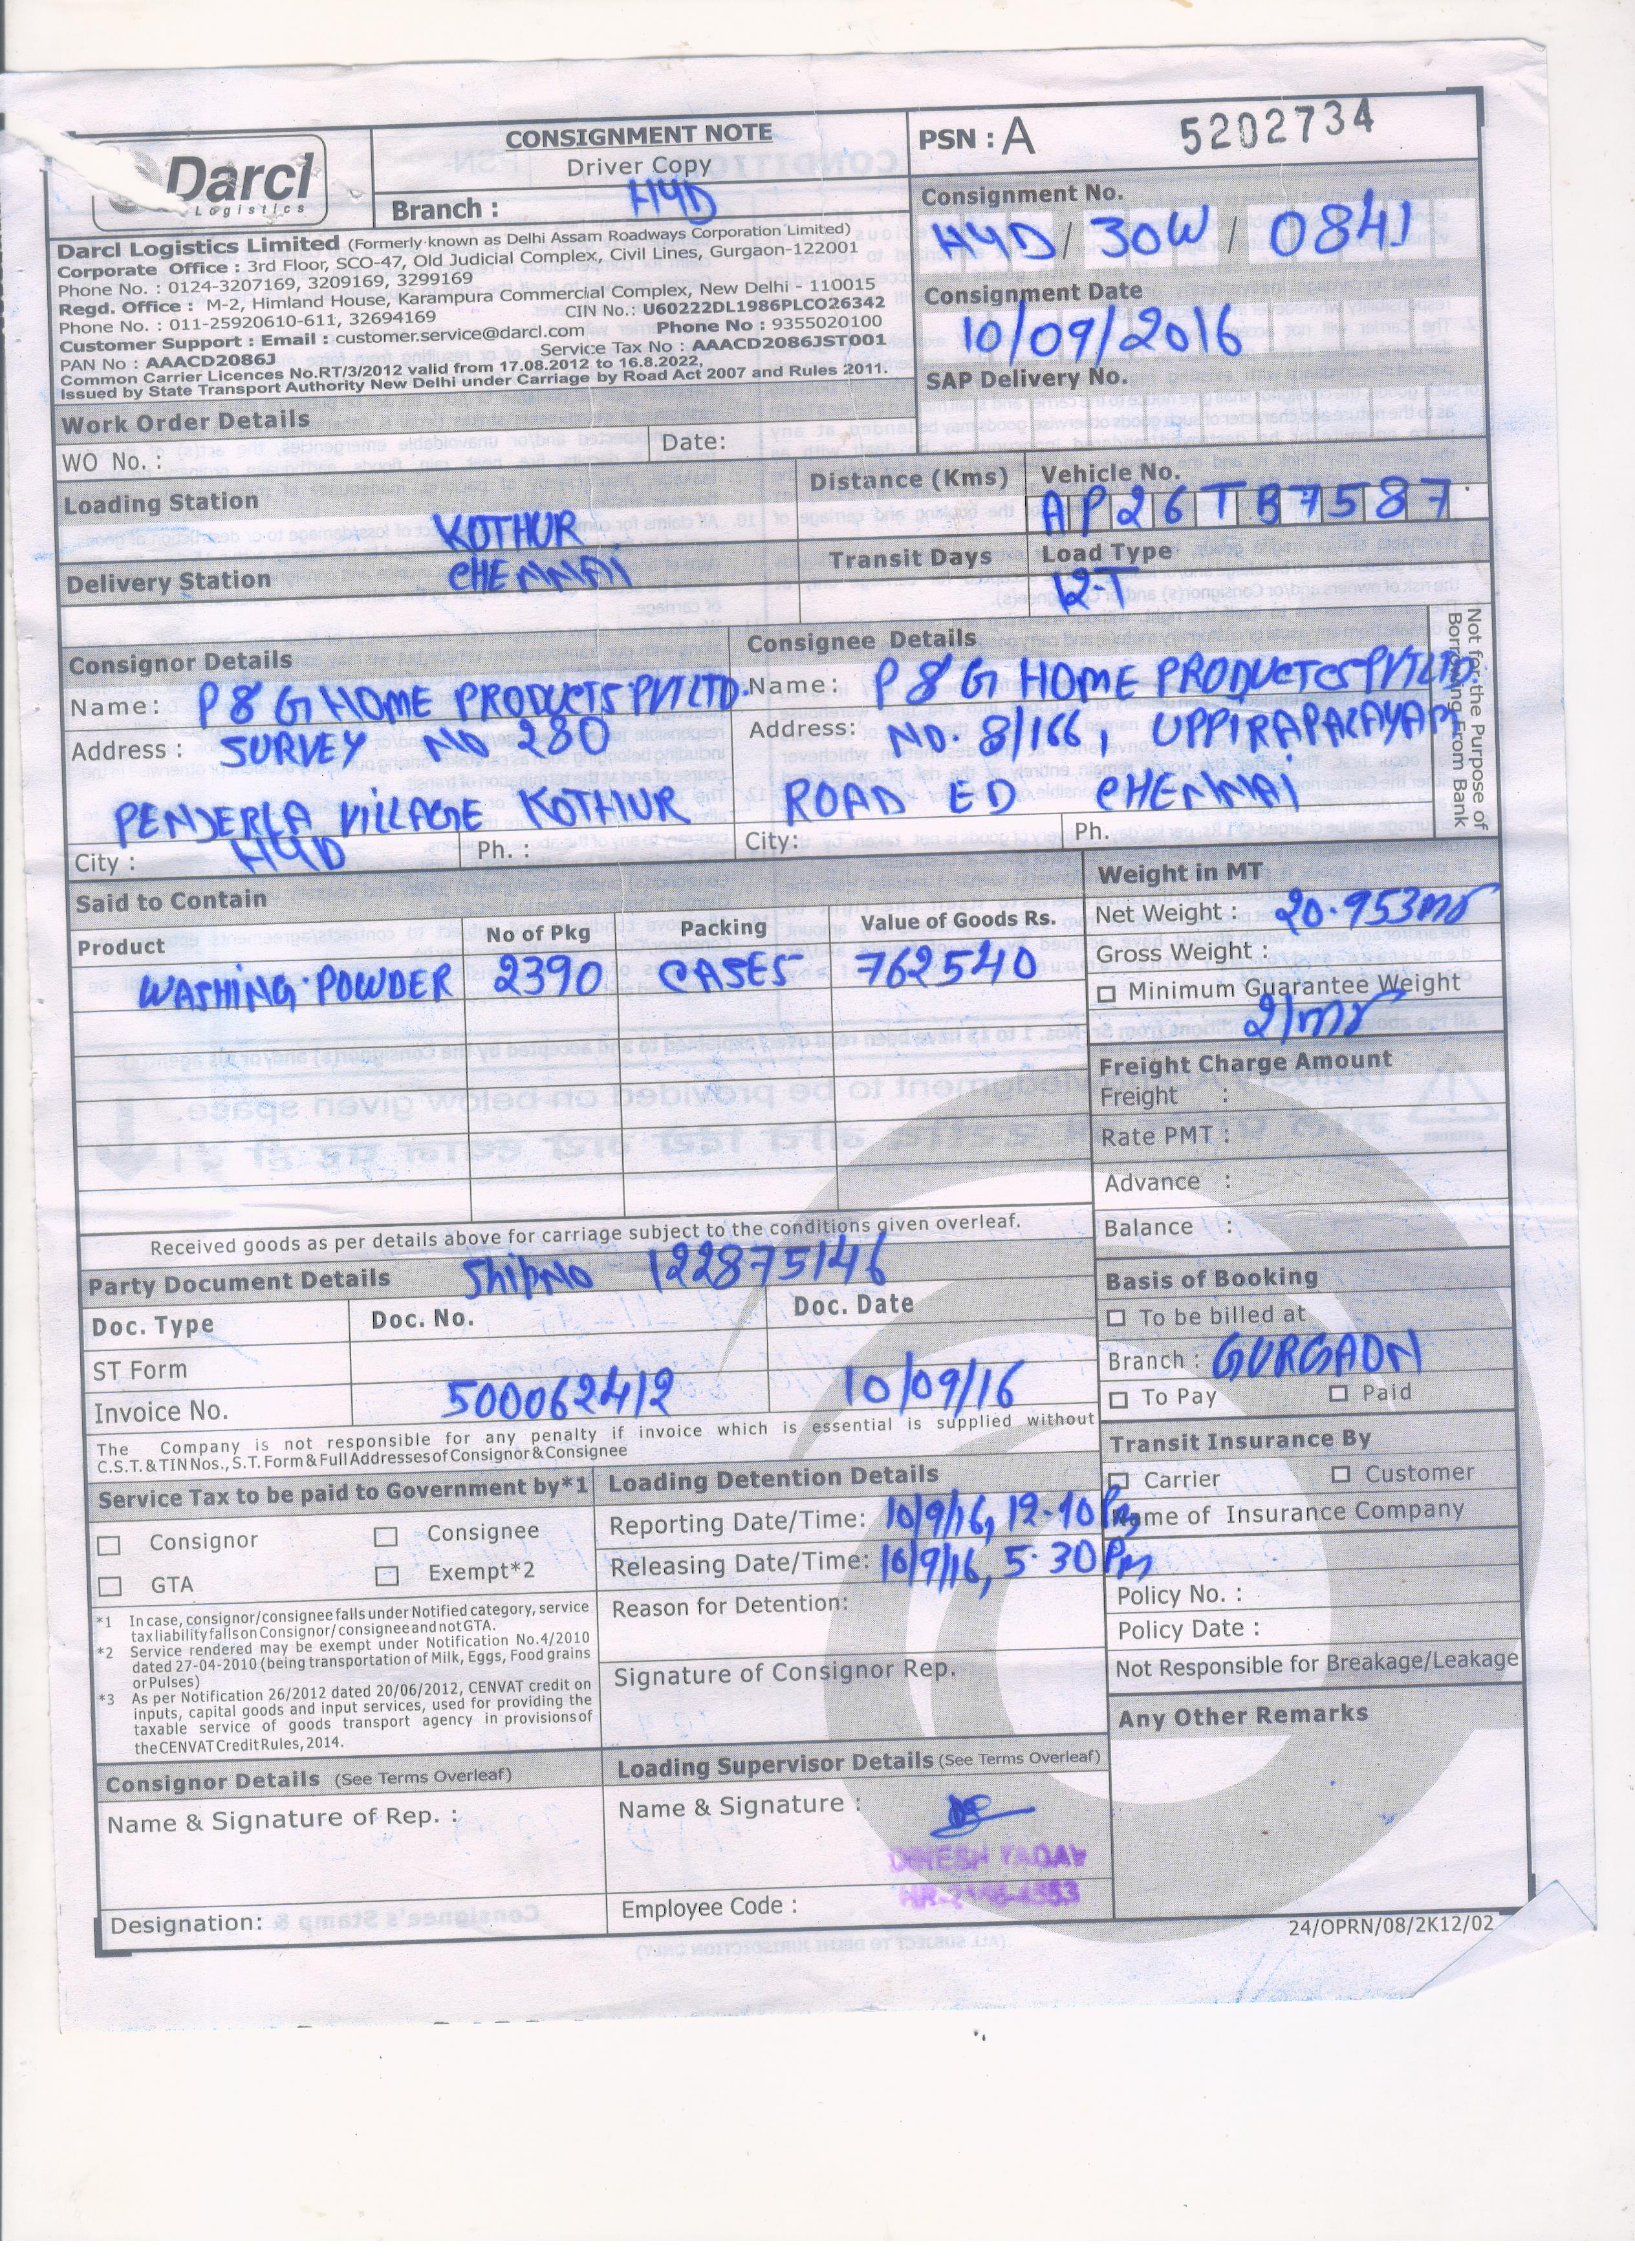 Darcl
Logistics
CONSIGNMENT NOTE
Driver Copy
Branch : HYD
PSN : A 5202734
Consignment No.
HYD / 30W / 0841
Consignment Date
10/09/2016
SAP Delivery No.
Darcl Logistics Limited (Formerly known as Delhi Assam Roadways Corporation Limited)
Corporate Office : 3rd Floor, SCO-47, Old Judicial Complex, Civil Lines, Gurgaon-122001
Phone No. : 0124-3207169, 3209169, 3299169
Regd. Office : M-2, Himland House, Karampura Commercial Complex, New Delhi - 110015
Phone No. : 011-25920610-611, 32694169 CIN No.: U60222DL1986PLCO26342
Customer Support : Email : customer.service@darcl.com Phone No : 9355020100
PAN No : AAACD2086J Service Tax No : AAACD2086JST001
Common Carrier Licences No.RT/3/2012 valid from 17.08.2012 to 16.8.2022,
Issued by State Transport Authority New Delhi under Carriage by Road Act 2007 and Rules 2011.
Work Order Details
WO No. : Date:
Loading Station KOTHUR
Delivery Station CHENNAI
Distance (Kms)
Transit Days
Vehicle No.
AP26TB7587
Load Type
12-T
Consignor Details
Name: P & G HOME PRODUCTS PVT LTD.
Address : SURVEY NO 280
PENDERLA VILLAGE KOTHUR
City : HYD Ph. :
Consignee Details
Name: P & G HOME PRODUCTCS PVT LTD.
Address: NO. 8/166, UPPIRAPALAYAM
ROAD ED CHENNAI
City: Ph.
Not for the Purpose of
Borrowing From Bank
Said to Contain
Product No of Pkg Packing Value of Goods Rs.
WASHING POWDER 2390 CASES 762540
Weight in MT
Net Weight : 20.953mt
Gross Weight :
Minimum Guarantee Weight
21mt
Freight Charge Amount
Freight :
Rate PMT :
Advance :
Balance :
Received goods as per details above for carriage subject to the conditions given overleaf.
Party Document Details Ship No 122875146
Doc. Type Doc. No. Doc. Date
ST Form
Invoice No. 500062412 10/09/16
The Company is not responsible for any penalty if invoice which is essential is supplied without
C.S.T. & TIN Nos., S.T. Form & Full Addresses of Consignor & Consignee
Basis of Booking
To be billed at
Branch : GURGAON
To Pay Paid
Transit Insurance By
Carrier Customer
Name of Insurance Company
Policy No. :
Policy Date :
Not Responsible for Breakage/Leakage
Any Other Remarks
Service Tax to be paid to Government by*1
Consignor Consignee
GTA Exempt*2
*1 In case, consignor/consignee falls under Notified category, service
tax liability falls on Consignor/ consignee and not GTA.
*2 Service rendered may be exempt under Notification No.4/2010
dated 27-04-2010 (being transportation of Milk, Eggs, Food grains
or Pulses)
*3 As per Notification 26/2012 dated 20/06/2012, CENVAT credit on
inputs, capital goods and input services, used for providing the
taxable service of goods transport agency in provisions of
the CENVAT Credit Rules, 2014.
Loading Detention Details
Reporting Date/Time: 10/9/16, 12-10 Pm
Releasing Date/Time: 10/9/16, 5-30 Pm
Reason for Detention:
Signature of Consignor Rep.
Consignor Details (See Terms Overleaf)
Name & Signature of Rep. :
Designation:
Loading Supervisor Details (See Terms Overleaf)
Name & Signature :
DINESH YADAV
Employee Code :
24/OPRN/08/2K12/02